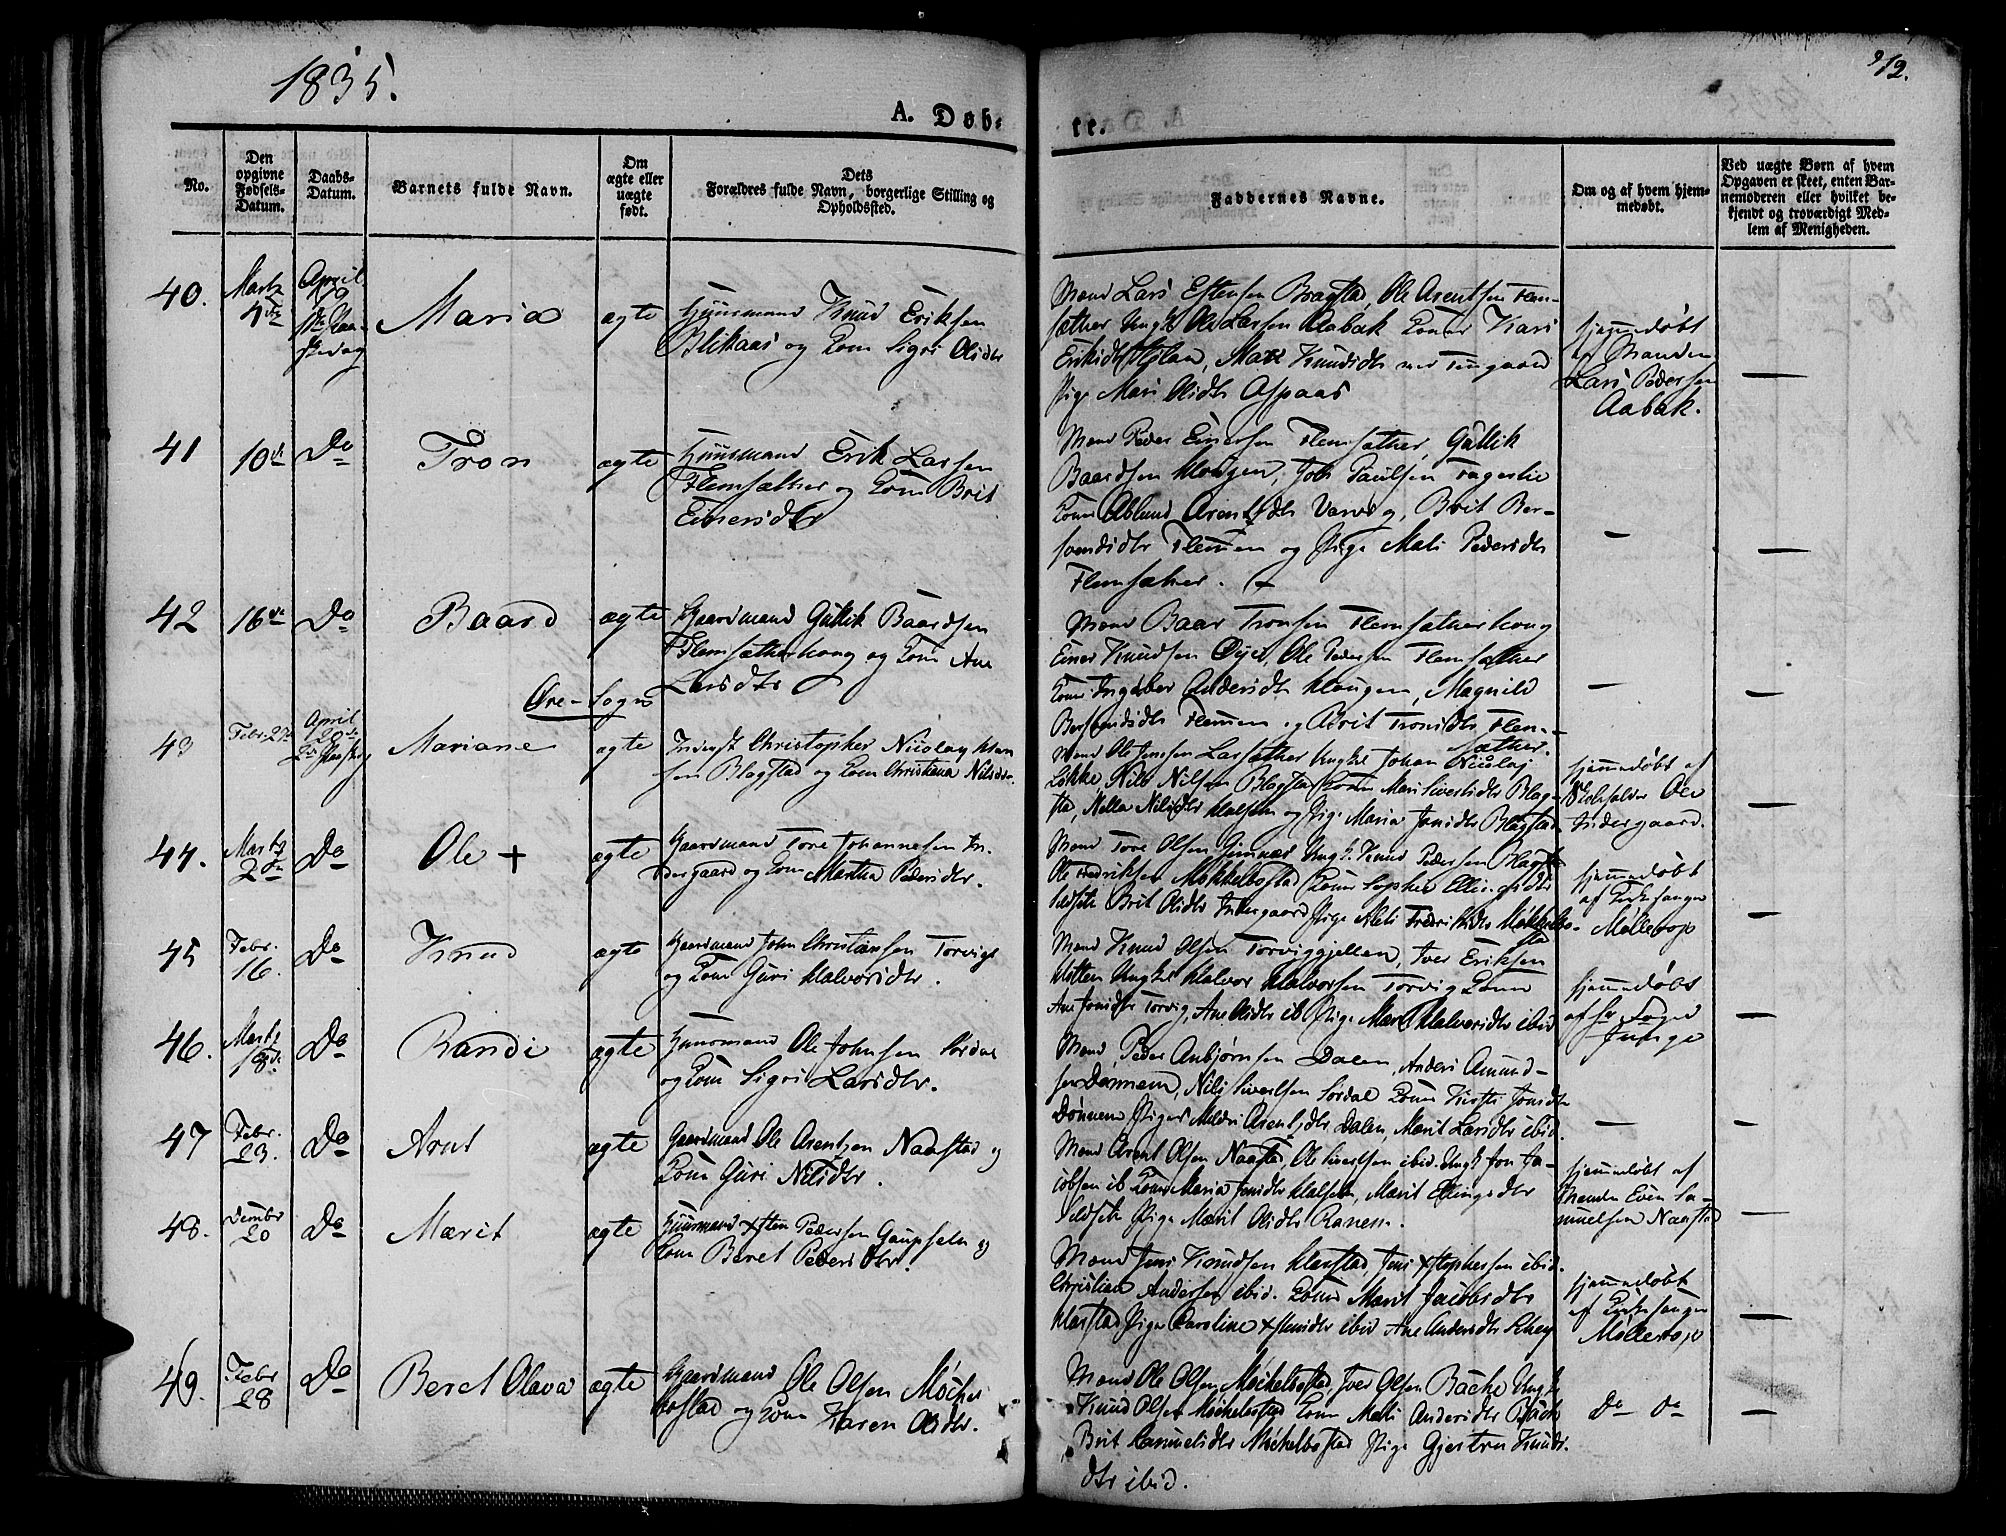 1835.
A. Døb-
te.
12.
No.
Den opgivne Fødsels-Datum.
Daabs-Datum.
Barnets fulde Navn.
Om ægte eller uægte født.
Dets Forældres fulde Navn, borgerlige Stilling og Opholdssted.
Faddernes Navne.
Om og af hvem hjem-medøbt.
Ved uægte Børn af hvem Opgaven er skeet, enten Bar-nemoderen eller hvilket be-kjendt og troværdigt Med-lem af Menigheden.
40.
Marts
4de
April
19
Maria
ægte
Huusmand Knud Eriksen
Blikaas og Kone Sigri Olsdtr
Mænd Lars Estensen Bragstad, Ole Arentsen Flem-
sæther Ungk Ole Larsen Aabak Koner Kari
Eriksdtr Holan, Mari Knudsdtr
Pige Mari Olsdtr Aspaas
hjemmedøbt
af Manden
Lars Pedersen
Aabak.
41
10de
Do
Tron
ægte
Huusmand Erik Larsen
Flemsæther og Kone Brit
Einersdtr
Mænd Peder Einersen Flemsæther, Gullik
Baardsen Haugen, Joh Paulsen Fagerlie
Koner Ablund Arentsdtr Varvig, Brit Ber-
svendsdtr Flemmen og Pige Mali Pedersdtr
Flemsæther.
42
16de
Do
Baard
ægte
Gaardmand Gullik Baardsen
Flemsætherhoug og Kone Ane
Larsdtr
Mænd Baar Tronsen Flemsætherhoug
Einer Knudsen Øye, Ole Pedersen Flemsæther
Koner Ingeber Andersdtr Haugen, Magnild
Bersvendsdtr Flemmen og Marit Tronsdtr Flem-
sæther.
Øre-Sogn
43
Febr. 27de
April
20de
Mariane
ægte
Inderst Christopher Nicolay Han
sen Blagstad og Kone Christiana Nilsdtr.
Mænd Ole Jensen Larsæther Ungkl Johan Nicolaj
Løkke, Nils Nilsen Blagstad Koner Mari Sivertsdtr Blag-
sta, Nella Nilsdtr Halsen og Pige Maria Jonsdtr Blagstad
hjemmedøbt af
Skoleholder Ole
Indergaard.
44.
Marts
2de
Do
Ole +
ægte
Gaardmand Tore Johannesen In-
dergaard og Kone Martha Pedersdtr.
Mænd Tore Olsen Gimnæs Ungk. Knud Pedersen Blagsta
Ole Fredriksen Møkkelbostad Koner Sophia Ellingsdtr
Sæhsete Brit Olsdtr Indergaard Pige Mali Fredriksdtr Møkkelbo-
sta
hjemmedøbt
af Kirkesanger
Møllerop
45
Febr.
16.
Do
Knud
ægte
Gaardmand John Christensen Torvig
og Kone Guri Halvorsdtr.
Mænd Knud Olsen Torviggjellan, Iver Eriksen
Hatten Ungkl Halvor Halvorsen Torvig Koner
Ane Jonsdtr Torvig, Ane Olsdtr ib Pige Mari Halvorsdtr ibid
hjemmedøbt
af Hr Foged
Junge
46.
Marts
18de
Do
Randi
ægte
Huusmand Ole Johnsen Sordal
og Kone Sigri Larsdtr.
Mænd Peder Anbjørnsen Dalen, Anders Amund-
sen Dønnem, Nils Sivertsen Sordal Koner Kirsti Jonsdtr
Dønnem Piger Mari Arentsdtr Dalen, Marit Larsdtr ibid.
47
Febr.
23.
Do
Arnt
ægte
Gaardmand Ole Arentsen Naastad og
Kone Guri Nilsdtr.
Mænd Arent Olsen Naastad, Ole Sivertsen ibid. Ungk Jon Ja-
cobsen ib Koner Maria Jonsdtr Halsen, Marit Ellingsdtr
Sæhsete Pige Marit Olsdtr Ranem.
hjemmedøbt af
Manden Even Sa-
muelsen Naastad
48.
Decembr
20
Do
Marit
ægte
Huusmand Xsten Pedersen Gaupseln og
Kone Beret Pedersdtr.
Mænd Jens Knudsen Harstad, Jens Xstophersen ibid.
Christian Andersen ibid. Koner Marit Jacobsdtr
Harstad Piger Caroline Xstensdtr ibid Ane Andersdtr
hjemmedøbt
af Kirkesanger
Møllerop
49.
Febr
28
Do
Beret Olava
ægte
Gaardmand Ole Olsen Møckel
bostad og Kone Karen Olsdtr.
Mænd Ole Olsen Møckelbostad Iver Olsen Bache Ungk
Knud Olsen Møckelbostad Koner Mali Andersdtr Bache
Brit Samuelsdtr Møckelbostad Pige Gjertru Knuds
dtr ibid.
Do Do